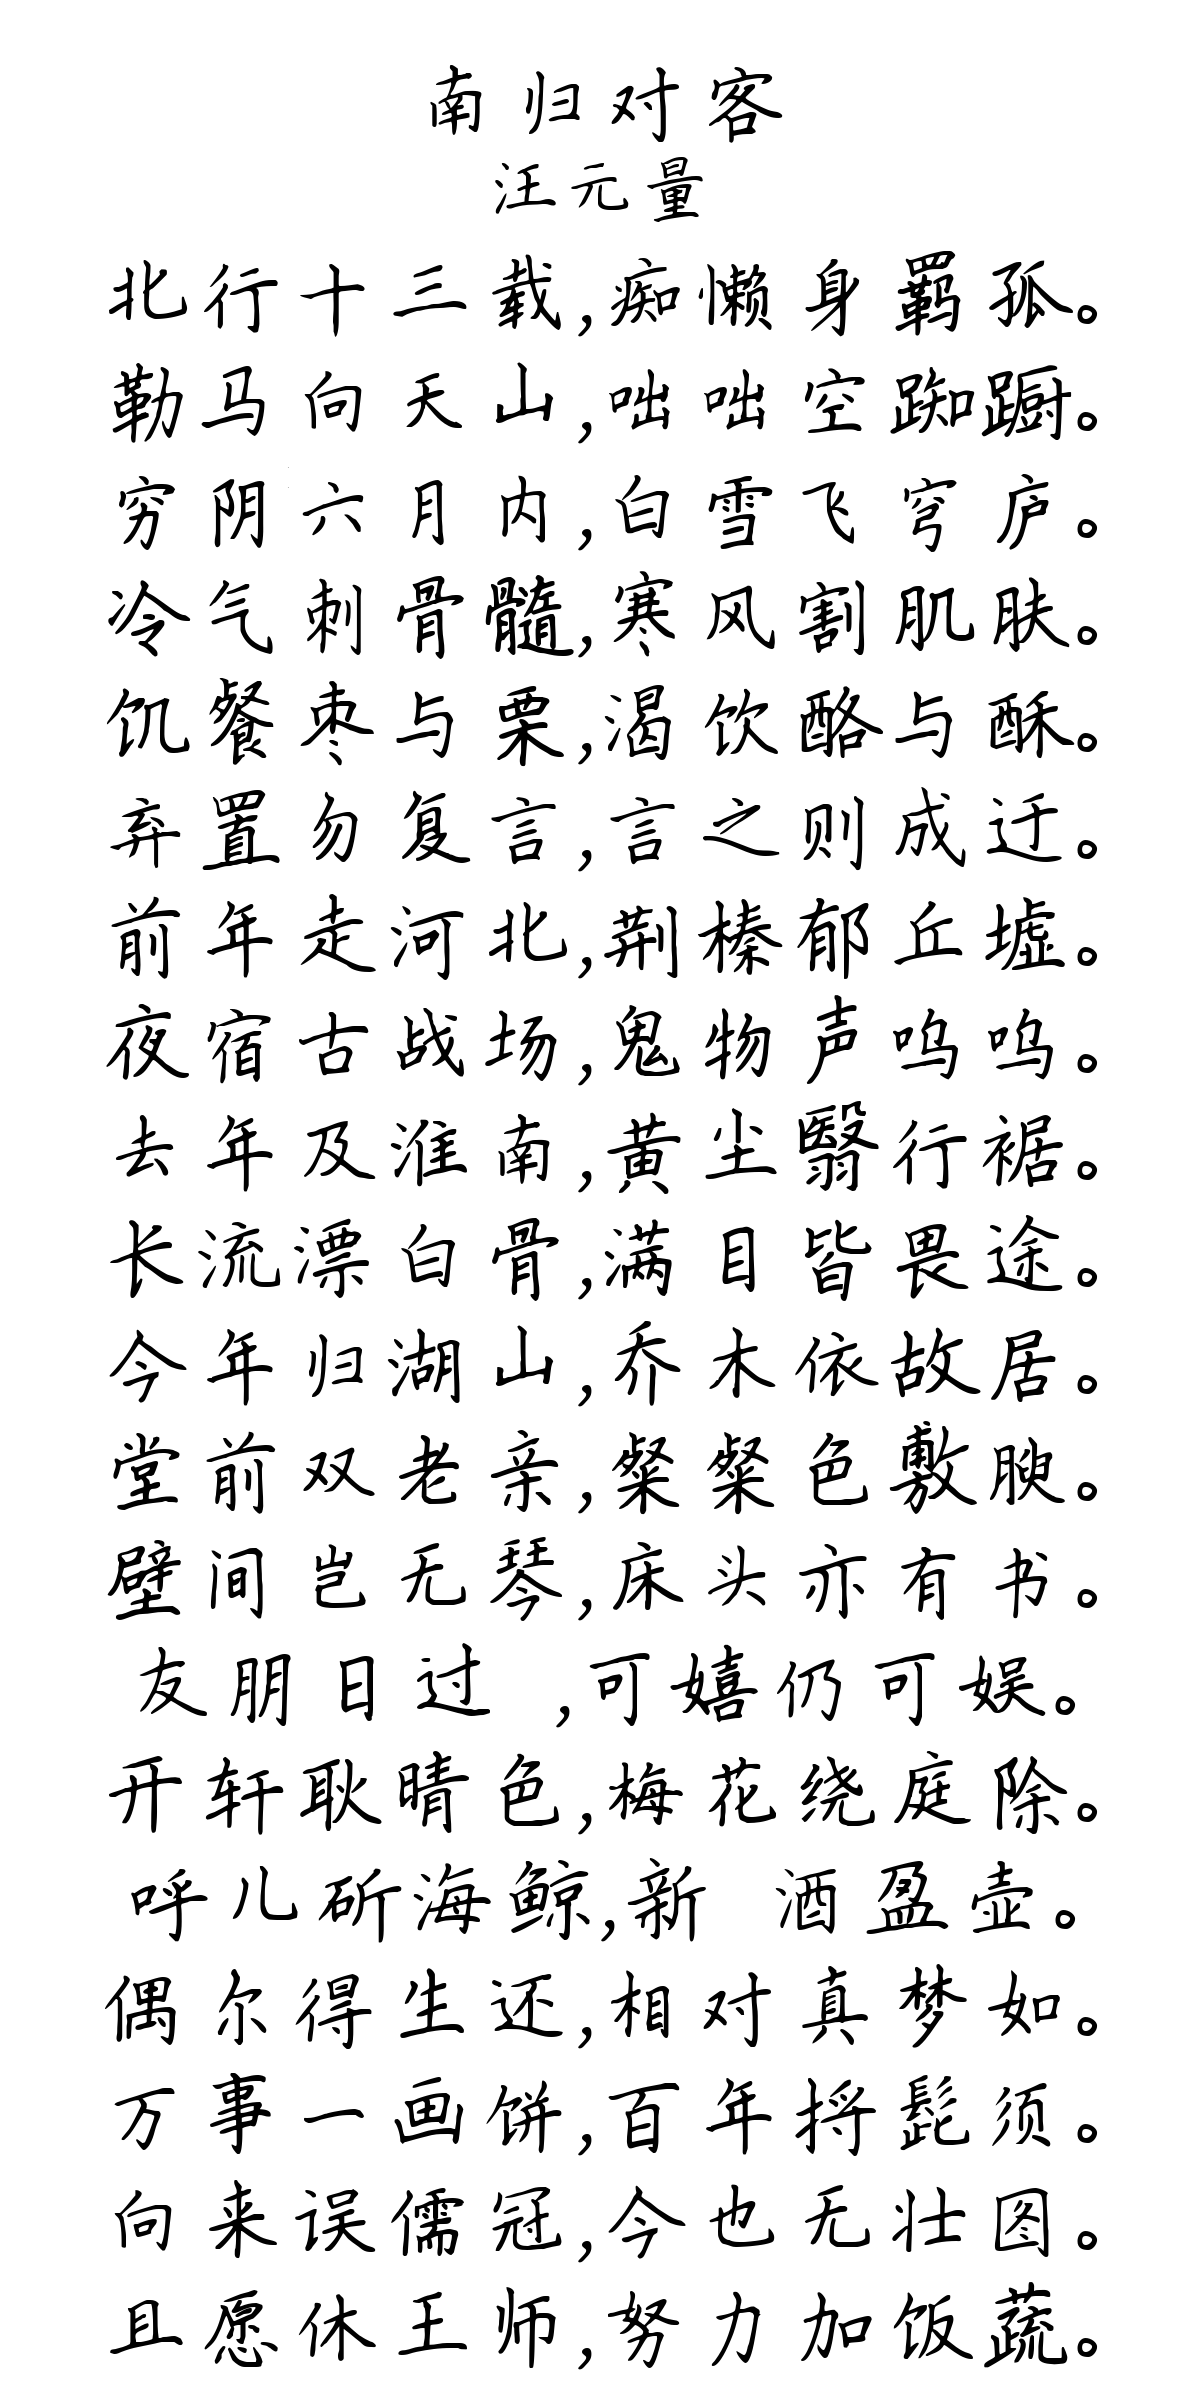 南归对客
汪元量
北行十三载,痴懒身羁孤。
勒马向天山,咄咄空踟蹰。
穷阴六月内,白雪飞穹庐。
冷气刺骨髓,寒风割肌肤。
饥餐枣与栗,渴饮酪与酥。
弃置勿复言,言之则成迂。
前年走河北,荆榛郁丘墟。
夜宿古战场,鬼物声呜呜。
去年及淮南,黄尘翳行裾。
长流漂白骨,满目皆畏途。
今年归湖山,乔木依故居。
堂前双老亲,粲粲色敷腴。
壁间岂无琴,床头亦有书。
友朋日过 ,可嬉仍可娱。
开轩耿晴色,梅花绕庭除。
呼儿斫海鲸,新 酒盈壶。
偶尔得生还,相对真梦如。
万事一画饼,百年捋髭须。
向来误儒冠,今也无壮图。
且愿休王师,努力加饭蔬。